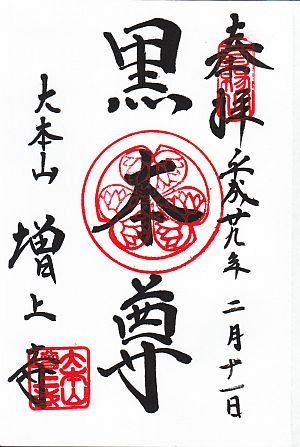 奉拝
平成廿九年 二月十一日
黒本尊
大本山 増上寺